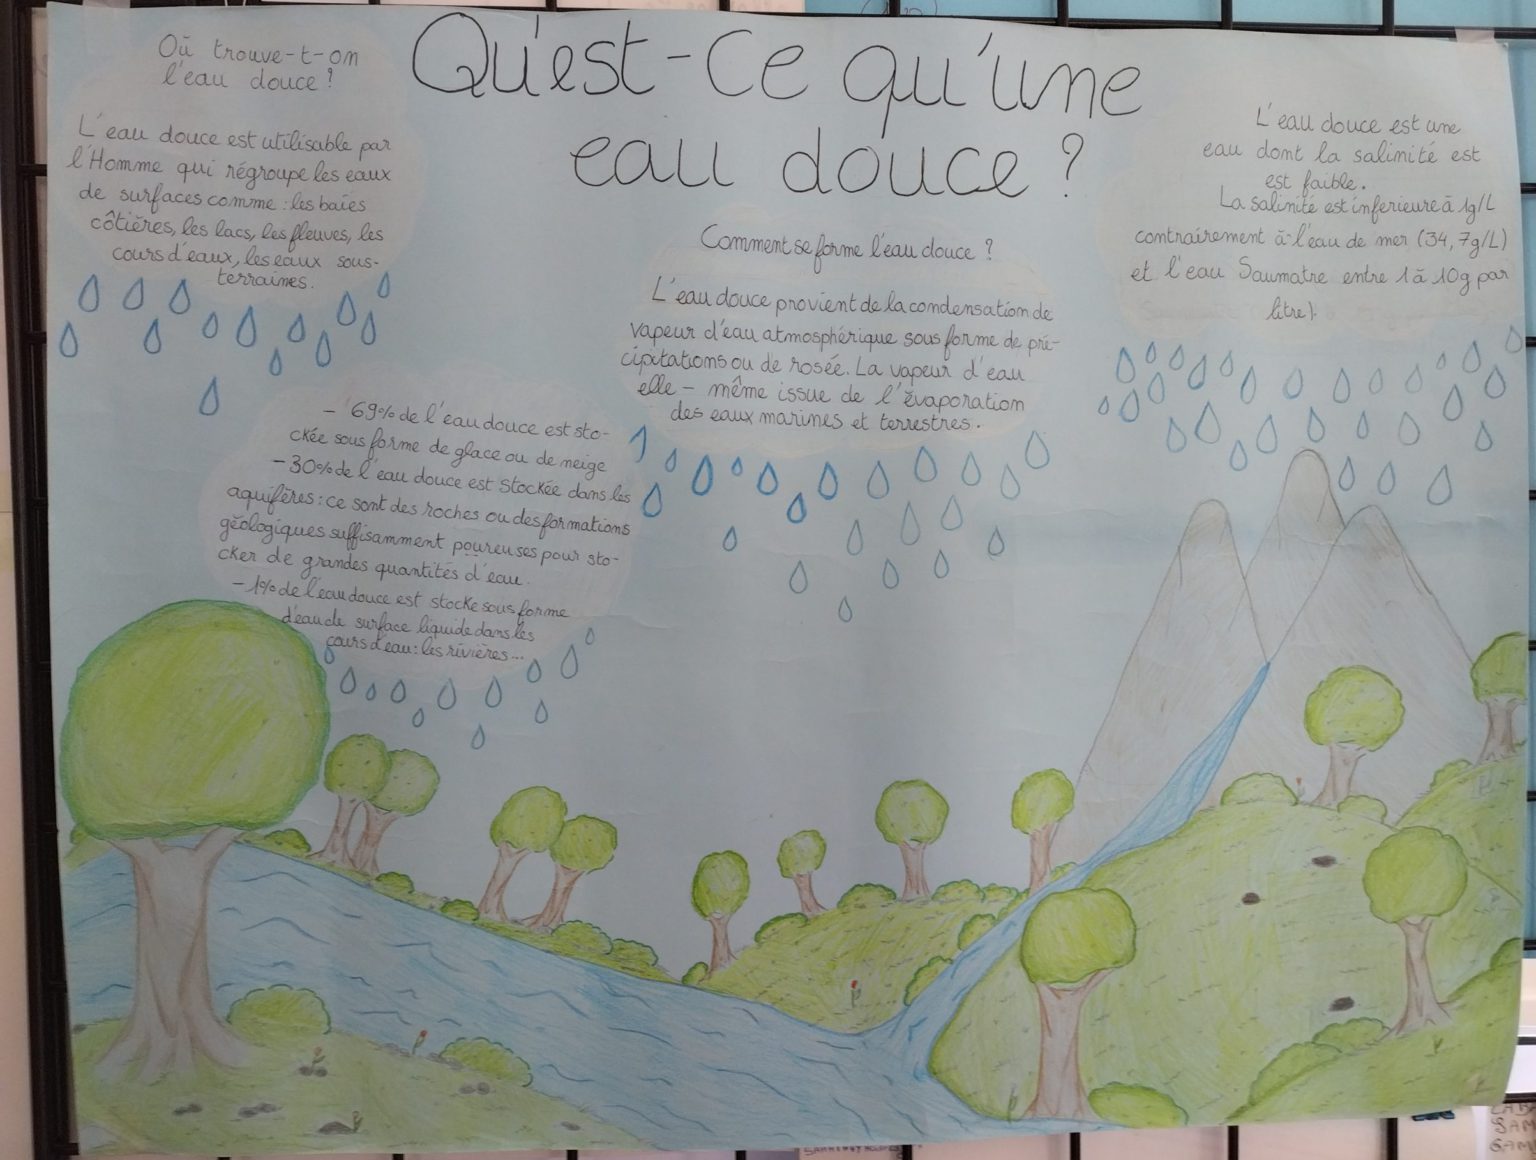 Qu'est-Ce qu'une
eau douce ?
Où trouve-t-on
l'eau douce ?
L'eau douce est utilisable par
l'Homme qui régroupe les eaux
de surfaces comme : les baies
côtières, les lacs, les fleuves, les
cours d'eaux, les eaux sous-
térraines.
- 69% de l'eau douce est sto-
ckée sous forme de glace ou de neige
- 30% de l'eau douce est stockée dans les
aquifères : ce sont des roches ou des formations
géologiques suffisamment poureuses pour sto-
cker de grandes quantités d'eau.
- 1% de l'eau douce est stocke sous forme
d'eau de surface liquide dans les
cours d'eau : les rivières...
Comment se forme l'eau douce ?
L'eau douce provient de la condensation de
vapeur d'eau atmosphérique sous forme de pré-
cipitations ou de rosée. La vapeur d'eau
elle - même issue de l'évaporation
des eaux marines et terrestres.
L'eau douce est une
eau dont la salinité est
est faible.
La salinité est inferieure à 1g/L
contrairement à l'eau de mer (34,7g/L)
et l'eau Saumatre entre 1 à 10g par
litre).